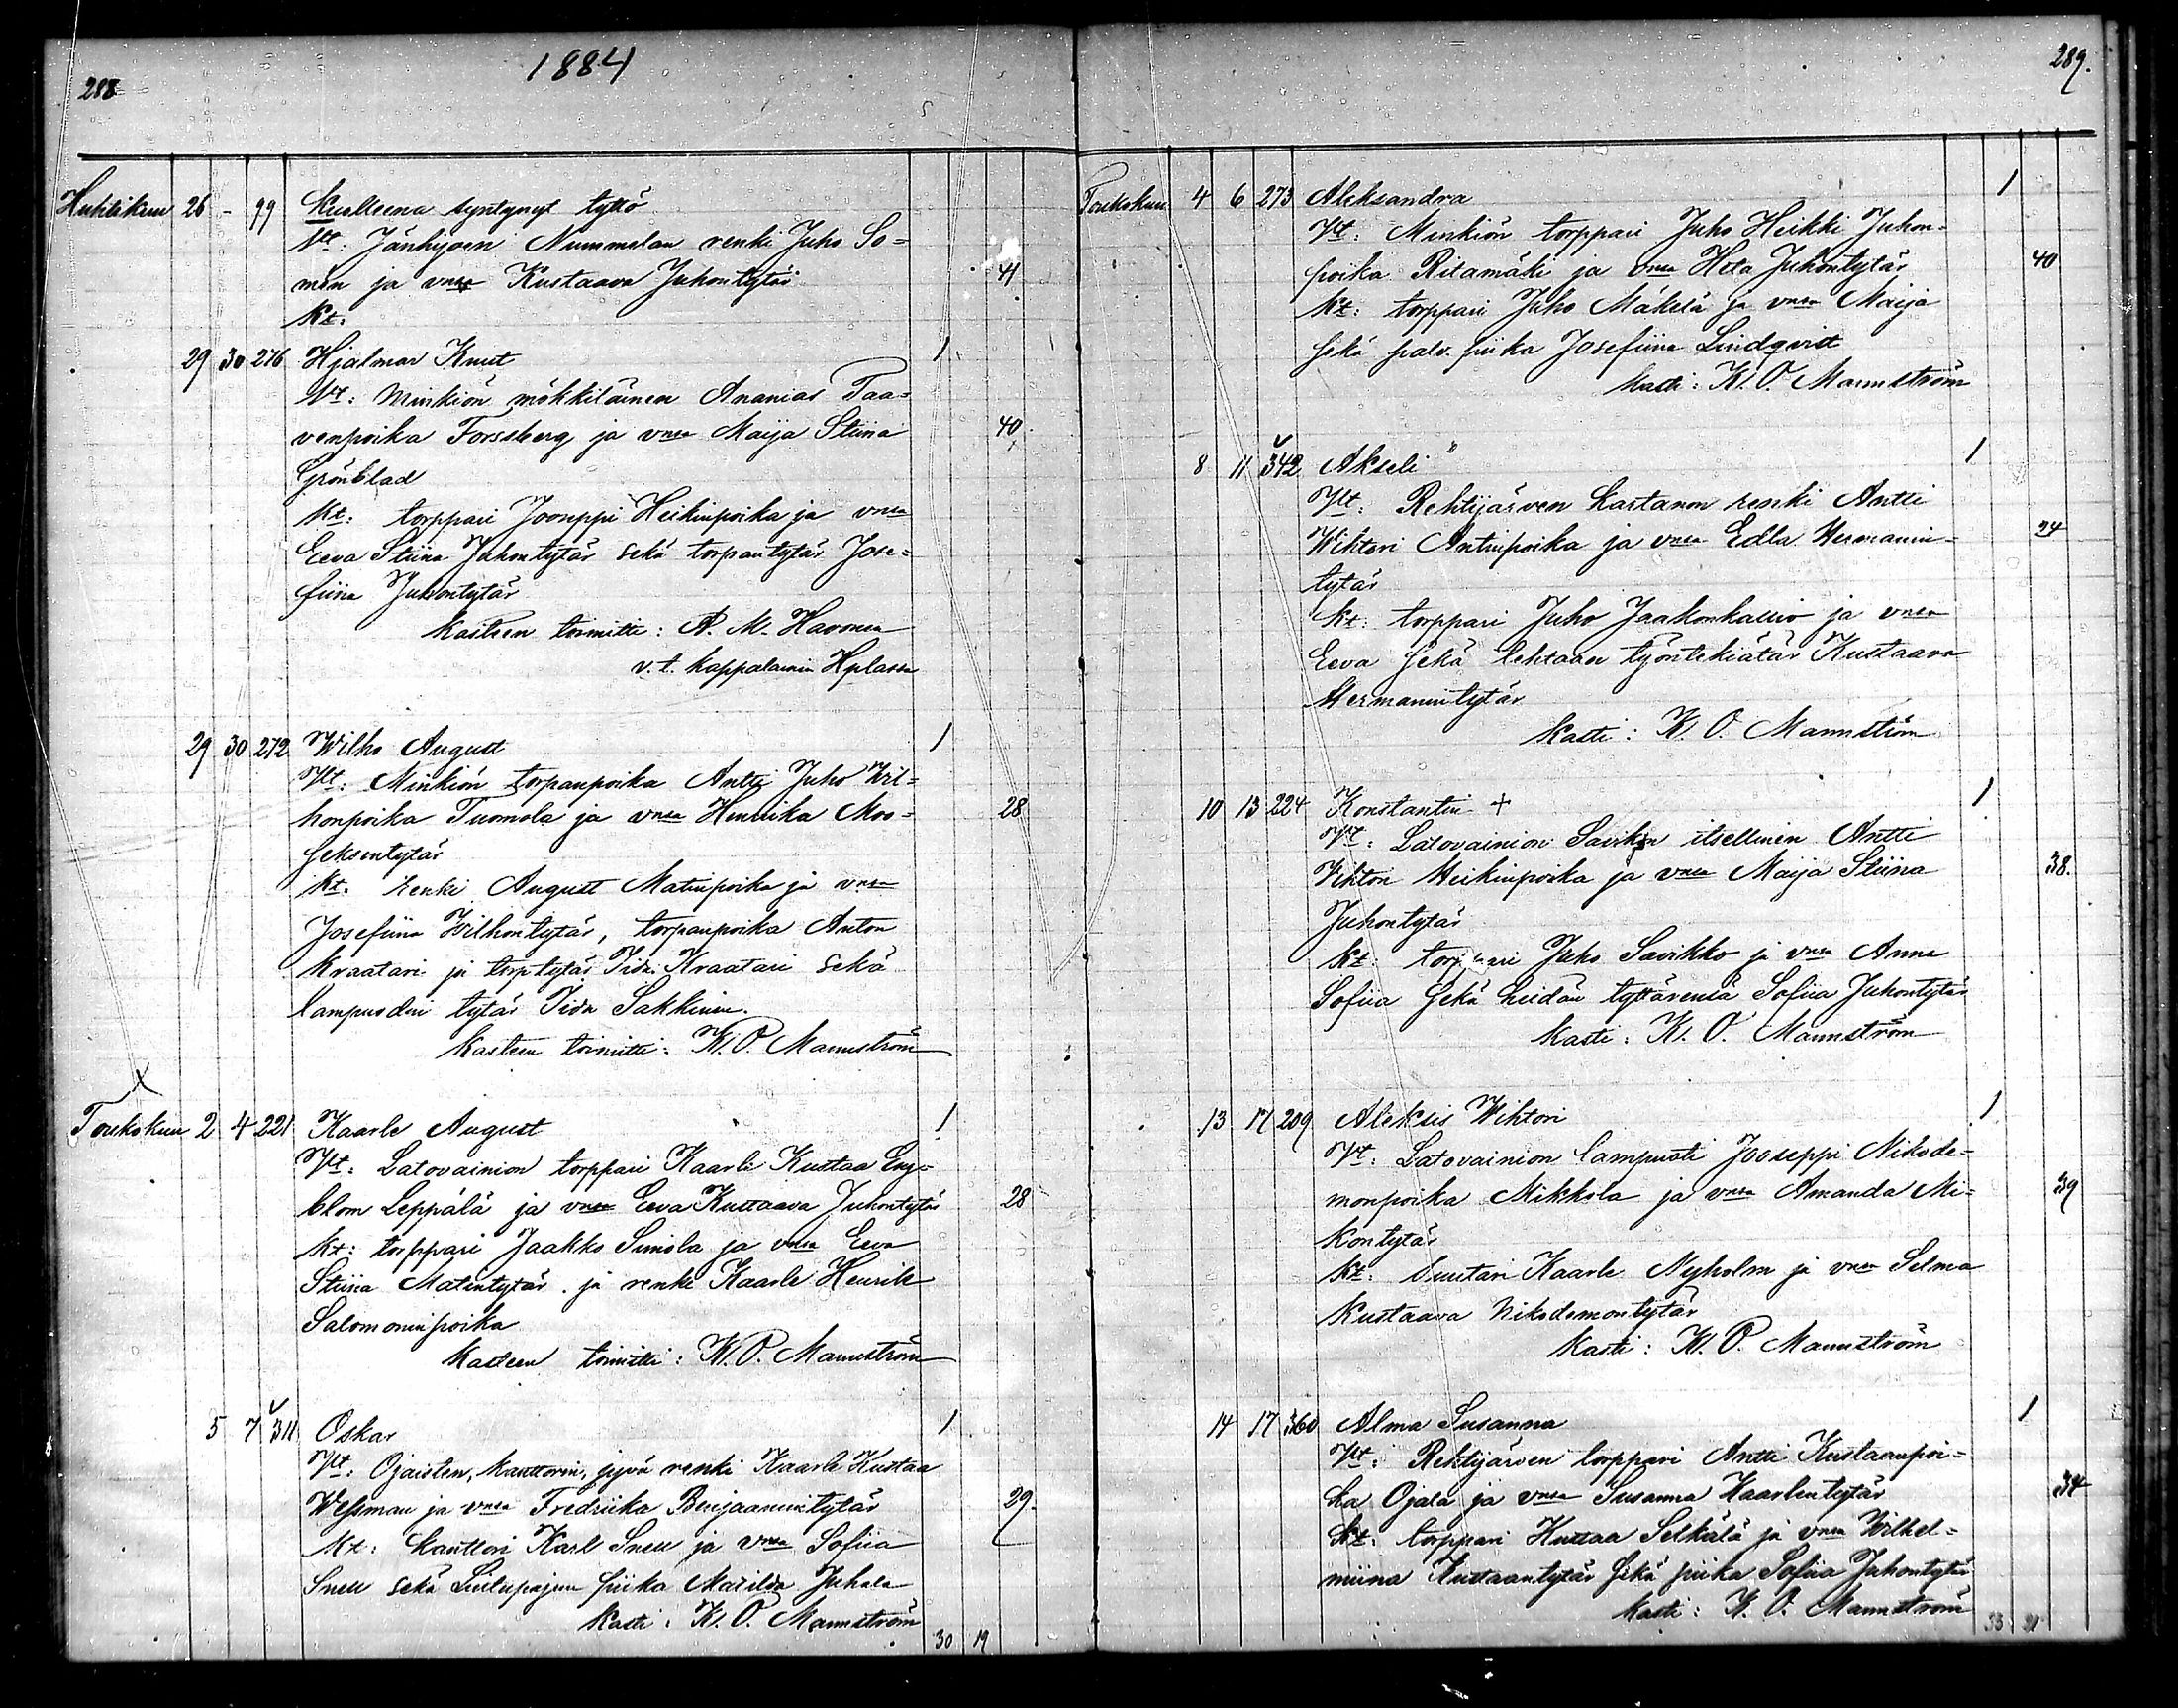 1884
288
Huhtikuu 26 - 99 Kuolleena syntynyt tyttö
Vt: Jänhijoen Nummelan renki Juho So=
men ja vnsa Kustaava Juhontytär 41
Kt:
29 30 276 Hjalmar Knut 1
Vt: Minkiön mökkiläinen Ananias Taa=
venpoika Forssberg ja vnsa Maija Stiina 40
Grönblad
Kt: torppari Jooseppi Heikinpoika ja vnsa
Eeva Stiina Juhontytär sekä torpantytär Jose=
fiina Juhontytär
Kasteen toimitti: A. M. Havonen
v.t. kappalainen Hplassa
29 30 272 Wilho August 1
Vt: Minkiön torpanpoika Antti Juho Wil=
honpoika Tuomola ja vnsa Henriika Moo= 28
seksentytär
Kt: renki August Matinpoika ja vnsa
Josefiina Wilhontytär, torpanpoika Anton
Kraatari ja torptytär Iida Kraatari sekä
lampuodin tytär Iida Sakkinen.
Kasteen toimitti: K. O. Mannström
Toukokuu 2 4 221 Kaarle August 1
Vt: Latovainion torppari Kaarle Kustaa Eng=
blom Leppälä ja vnsa Eeva Kustaava Juhontytär 28
Kt: torppari Jaakko Simola ja vnsa Eeva
Stiina Matintytär ja renki Kaarle Henrik
Salomoninpoika
Kasteen toimitti: K. O. Mannström
5 7 311 Oskar 1
Vt: Ojaisten, kanttorin, jyvä renki Kaarle Kustaa
Wessman ja vnsa Fredriika Benjaminintytär 29
Kt: kanttori Karl Snell ja vnsa Sofiia
Snell sekä piika Matilda Juhala
Kasti: K. O. Mannström
30 19
289.
Toukokuu 4 6 273 Aleksandra 1
Vt: Minkiön torppari Juho Heikki Juhon=
poika Ritamäki ja vnsa Heta Juhontytär 40
Kt: torppari Juho Mäkelä ja vnsa Maija
sekä palv. piika Josefiina Lindqvist
Kasti: K. O. Mannström
8 11 342 Akseli 1
Vt: Rehtijärven kartanon renki Antti
Wihtori Antinpoika ja vnsa Edla Hermannin= 24
tytär
Kt: torppari Juho Jaakonkallio ja vnsa
Eeva sekä tehtaan työntekiätär Kustaava
Hermannintytär
Kasti: K. O. Mannström
10 13 224 Konstantin + 1
Vt: Latovainion Savikon itsellinen Antti
Vihtori Heikinpoika ja vnsa Maija Stiina 38.
Juhontytär
Kt: torppari Juho Savikko ja vnsa Anna
Sofiia sekä heidän tyttärensä Sofiia Juhontytär
Kasti: K. O. Mannström
13 17 209 Aleksis Wihtori 1
Vt: Latovainion lampuoti Jooseppi Nikode=
monpoika Mikkola ja vnsa Amanda Mi= 39
kontytär
Kt: suutari Kaarle Nyholm ja vnsa Selma
Kustaava Nikodemontytär
Kasti: K. O. Mannström
14 17 360 Alma Susanna 1
Vt: Rehtijärven torppari Antti Kustaanpoi=
ka Ojala ja vnsa Susanna Kaarlentytär 34
Kt: torppari Kustaa Selkälä ja vnsa Wilhel=
miina Kustaantytär sekä piika Sofiia Juhontytär
Kasti: K. O. Mannström
33 21